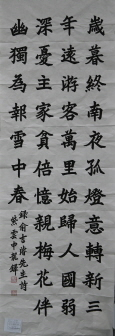 歲暮終南夜孤燈意轉新三
年遠游客萬里始歸人國弱
深憂主家貧倍憶親梅花伴
幽獨為報雪中春
錄俞吉濬先生詩
紫雲